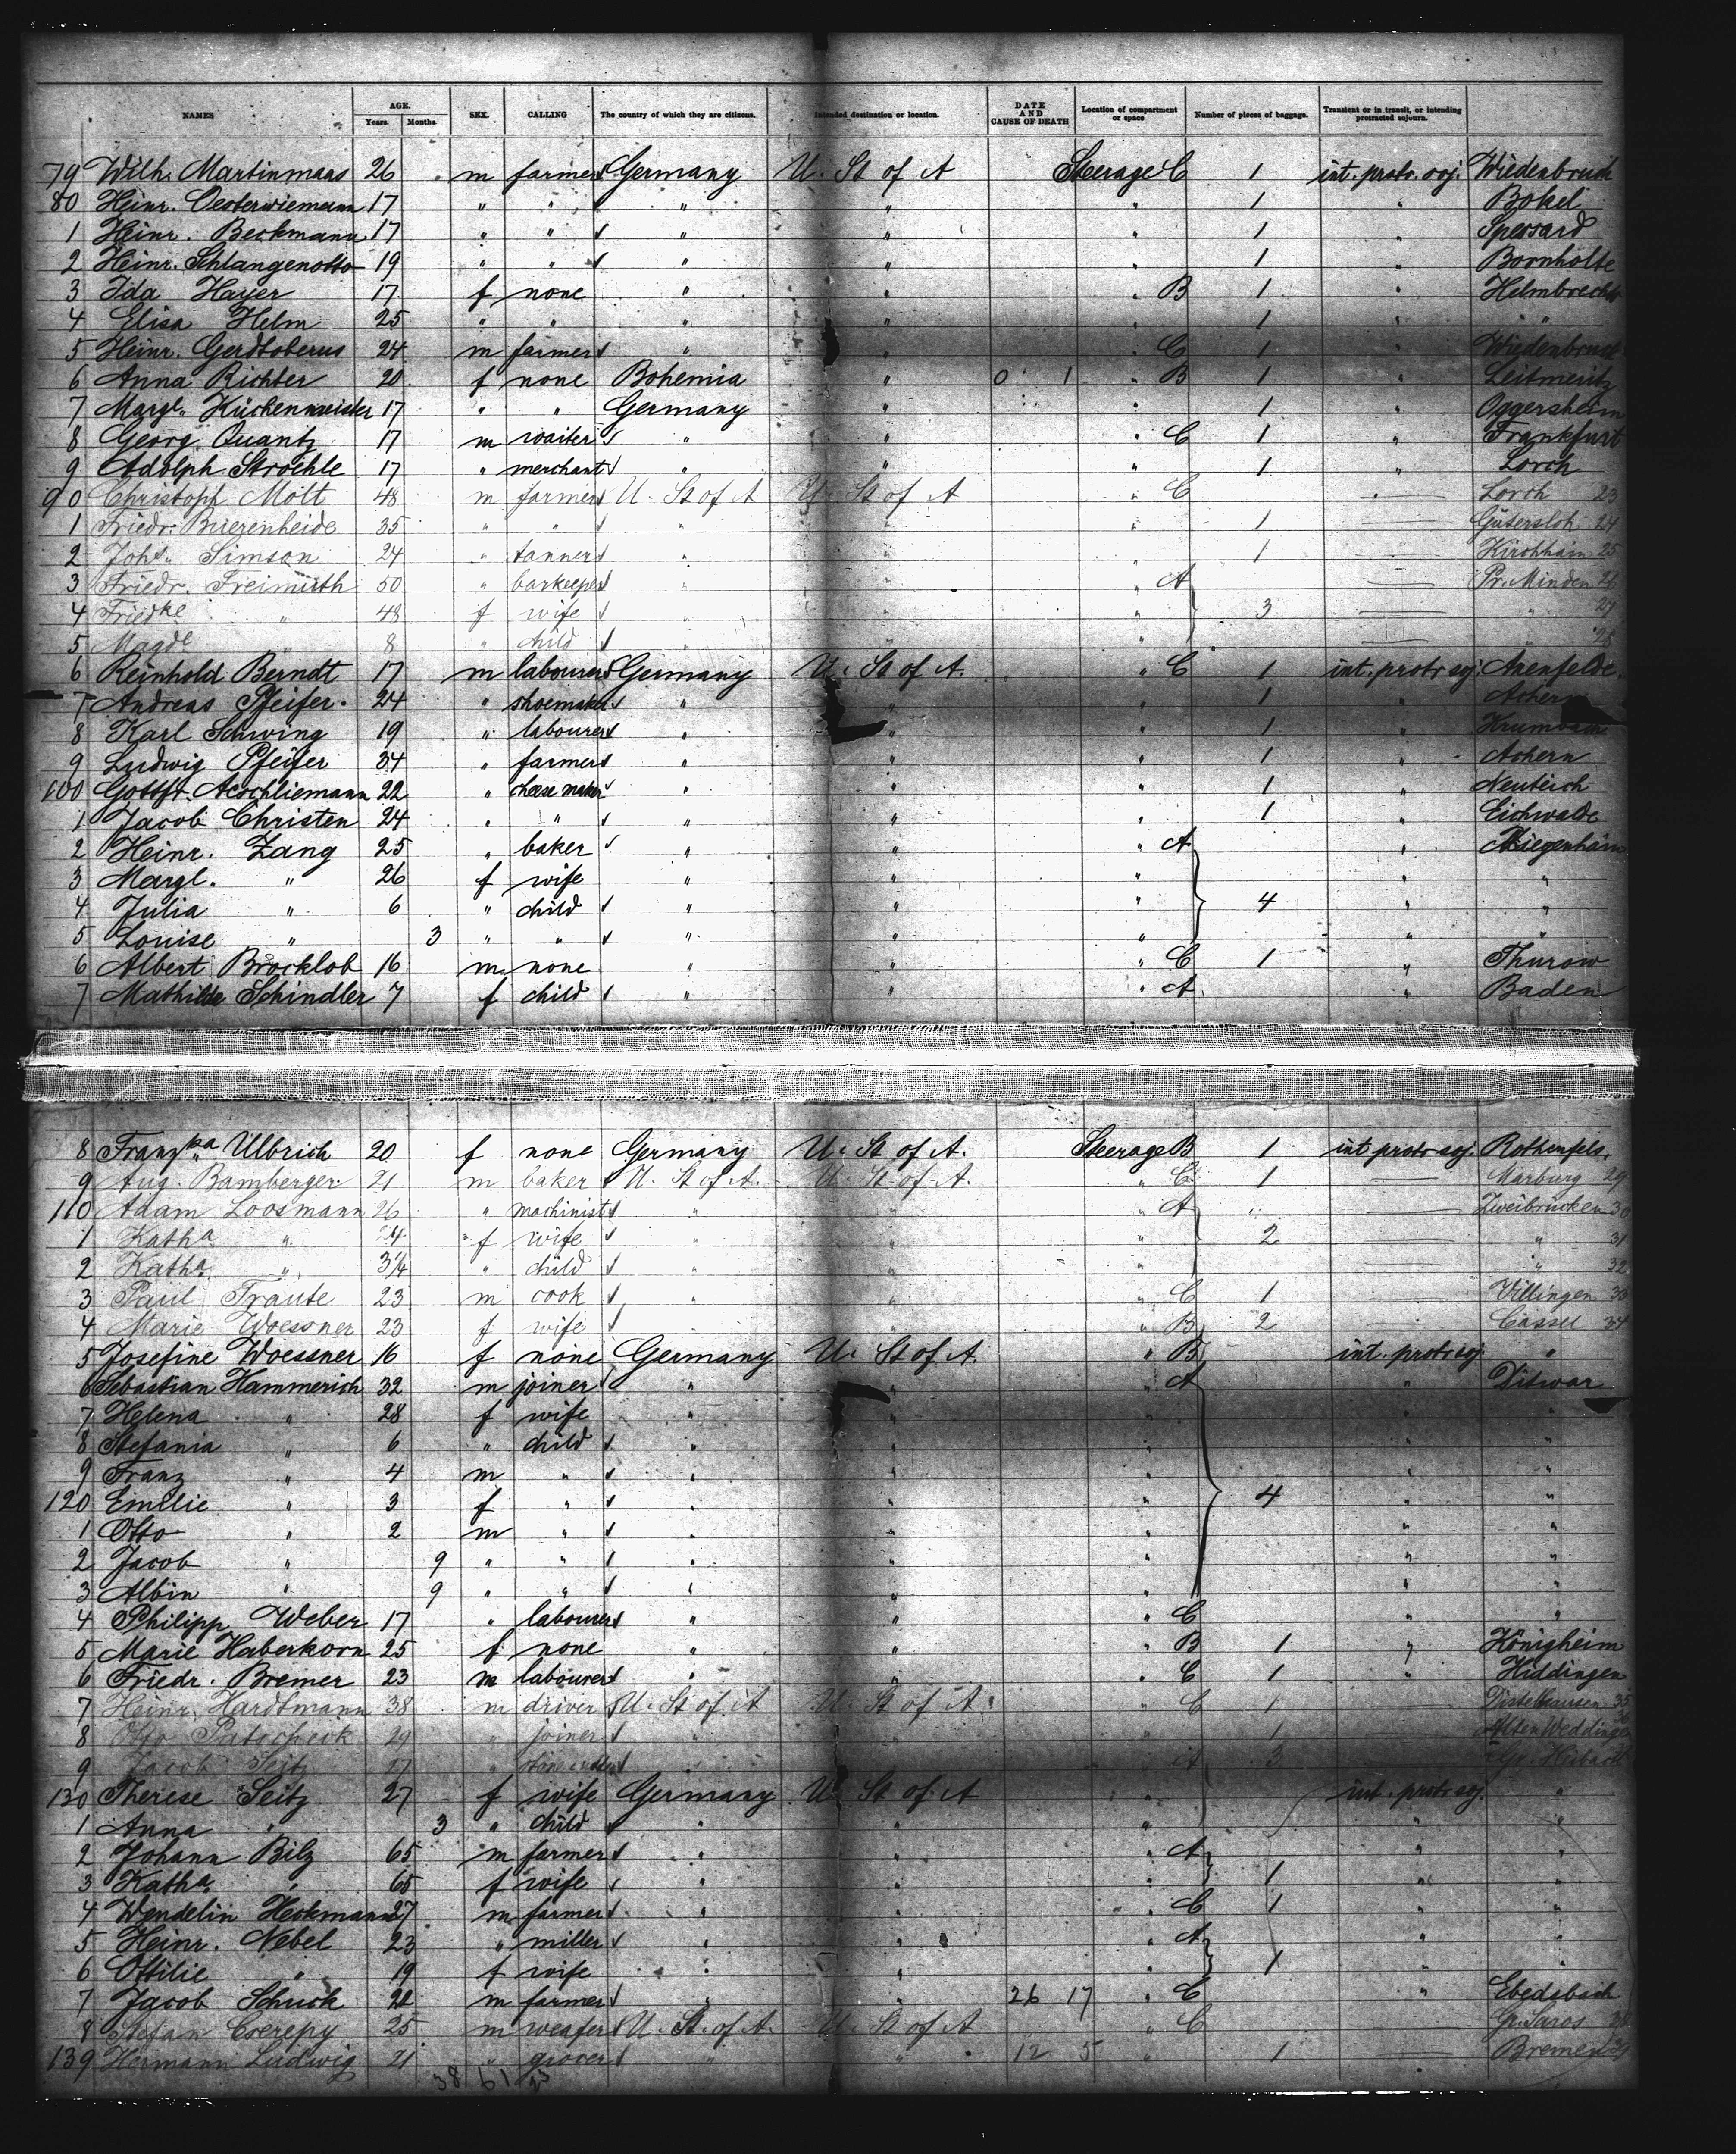 NAMES AGE. Years. Months. SEX. CALLING The country of which they are citizens. Intended destination or location. DATE AND CAUSE OF DEATH Location of compartment or space Number of pieces of baggage. Transient or in transit, or intending protracted sojourn.
79 Wilh. Martinmaas 26 m farmer Germany U. St of A Steerage C 1 int. protr. soj. Wiedenbruck
80 Heinr. Oesterwiemann 17 " " " " " 1 " Bokel
1 Heinr. Beckmann 17 " " " " " 1 " Spexard
2 Heinr. Schlangenotto 19 " " " " " 1 " Bornholte
3 Ida Hayer 17 f none " " " B 1 " Helmbrechts
4 Elisa Helm 25 " " " " " 1 " "
5 Heinr. Gerdtoberus 24 m farmer " " " C 1 " Wiedenbruck
6 Anna Richter 20 f none Bohemia " 0 1 " B 1 " Leitmeritz
7 Margt. Küchenmeister 17 " " Germany " " 1 " Oggersheim
8 Georg Quantz 17 m waiter " " " C 1 " Frankfurt
9 Adolph Stroehle 17 " merchant " " " 1 " Lorch
90 Christoph Mött 48 m farmer U. St of A U. St of A " C " Lorch 23
1 Friedr. Buezenheide 35 " " " " " 1 — Gütersloh 24
2 Joht. Simson 24 " tanner " " " 1 — Kirchhain 25
3 Friedr. Freimuth 50 " barkeeper " " " A — Pr. Minden 26
4 Friedke " 48 f wife " " " 3 — " 27
5 Magde " 8 " child " " " — " 28
6 Reinhold Berndt 17 m labourer Germany U. St of A. " C 1 int. protr soj. Arenfelde
7 Andreas Pfeifer 24 " shoemaker " " " 1 " Achern
8 Karl Schwing 19 " labourer " " " 1 "
9 Ludwig Pfeifer 34 " farmer " " " 1 " Achern
100 Gottfr. Aeschliemann 22 " cheese maker " " " 1 " Neuteich
1 Jacob Christen 24 " " " " " 1 " Eichwalde
2 Heinr. Zang 25 " baker " " " A " Ziegenhain
3 Margt. " 26 f wife " " " " "
4 Julia " 6 " child " " " 4 " "
5 Louise " 3 " " " " " " "
6 Albert Brocklob 16 m none " " " C 1 " Thurow
7 Mathilde Schindler 7 f child " " " A " Baden
8 Franzka Ulbrich 20 f none Germany U. St of A. Steerage B 1 int protr soj. Rothenfels.
9 Aug. Bamberger 21 m baker U. St of A. U. St of A. " C 1 — Marburg 29
110 Adam Loosmann 26 " machinist " " " A — Zweibrücken 30
1 Katha " 24 f wife " " " 2 — " 31
2 Katha " 3/4 " child " " " — " 32
3 Paul Traute 23 m cook " " " C 1 — Villingen 33
4 Marie Woessner 23 f wife " " " B 2 — Cassel 34
5 Josefine Woessner 16 f none Germany U. St of A. " B int. protr soj "
6 Sebastian Hammerich 32 m joiner " " " A " Ditwar
7 Helena " 28 f wife " " " " "
8 Stefania " 6 " child " " " " "
9 Franz " 4 m " " " " " "
120 Emilie " 3 f " " " " 4 " "
1 Otto " 2 m " " " " " "
2 Jacob " 9 " " " " " " "
3 Albin " 9 " " " " " " "
4 Philipp Weber 17 " labourer " " " C " "
5 Marie Haberkorn 25 f none " " " B 1 " Königheim
6 Friedr. Bremer 23 m labourer " " " C 1 " Hiddingen
7 Heinr. Hardtmann 38 m driver U. St of A U. St of A. " C 1 — 35
8 Otto Patscheck 29 " joiner " " " 1 — Alten Weddingen
9 Jacob Seitz 27 " stone cutter " " " A 3 —
130 Therese Seitz 27 f wife Germany U. St of A " int. protr soj. "
1 Anna " 3 " child " " " " "
2 Johann Bilz 65 m farmer " " " A " "
3 Katha " 65 f wife " " " 1 " "
4 Wendelin Heckmann 27 m farmer " " " C 1 " "
5 Heinr. Nebel 23 " miller " " " A " "
6 Ottilie " 19 f wife " " " 1 " "
7 Jacob Schuck 22 m farmer " " 26 17 " C " Ebedsbach
8 Stefan Cserepy 25 m weafer U. St. of A. U. St of A " C — Gr. Saros 38
139 Hermann Ludwig 21 " grocer " " 12 5 " 1 — Bremen 39
38 61 23